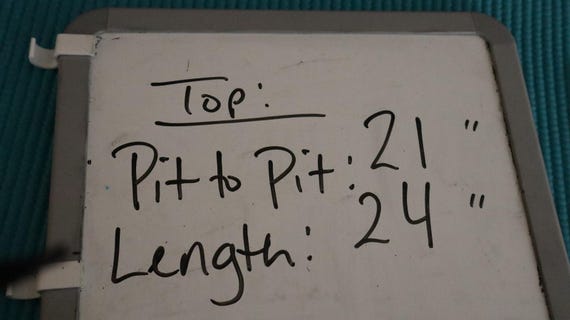 Top:
Pit to Pit: 21 "
Length: 24 "